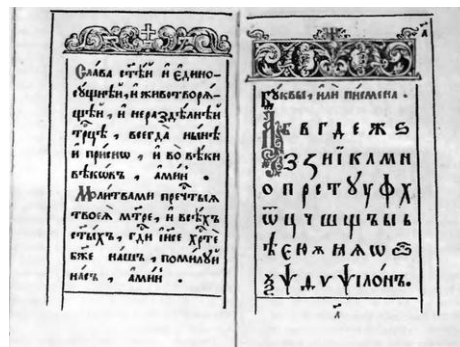 Сла́ва ст҃ѣ́й и҆ є҆дино-
сꙋ́щнѣй, и҆ животворѧ́-
щѣй, и҆ нераздѣ́лнѣй
трⷪ҇цѣ, всегда̀ ны́нѣ
и҆ при́снѡ, и҆ во вѣ́ки
вѣкѡ́въ, а҆ми́нь.
Моли́твами пречⷭ҇тыѧ
твоеѧ̀ мт҃ре, и҆ всѣ́хъ
ст҃ы́хъ, гдⷭ҇и і҆и҃се хрⷭ҇те
бж҃е на́шъ, поми́лꙋй
на́съ, а҆ми́нь.
а҃
Бꙋ́квы, и҆лѝ писмена̀.
А б в г д е ж ѕ
з ꙁ и ї к л м н
о п р с т ꙋ у ф х
ѿ ц ч ш щ ъ ы ь
ѣ є ю ѫ ѧ ѡ
ѯ ѱ ѵ ѱїло́нъ.